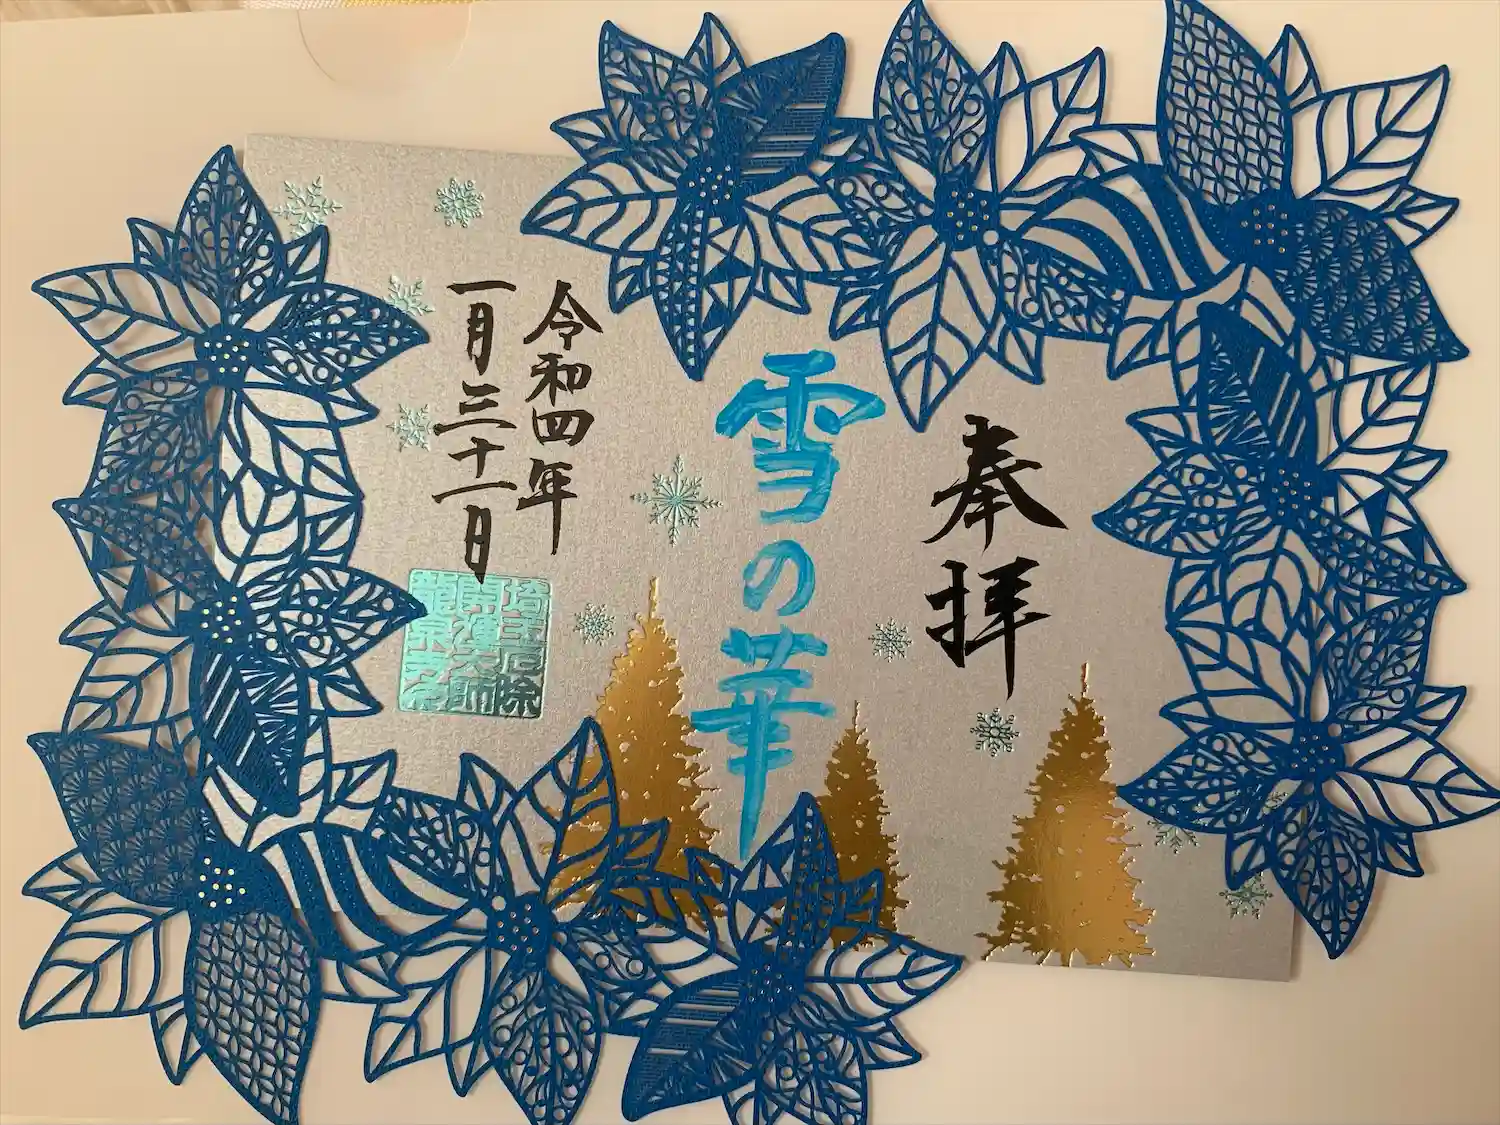 奉拝
雪の華
令和四年
一月三十一日
埼玉厄除
開運大師
龍泉寺